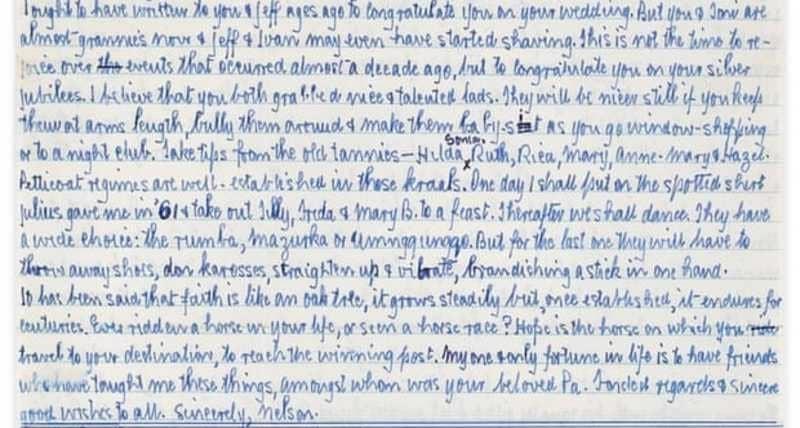 I ought to have written to you & Jeff ages ago to congratulate you on your wedding. But you & Toni are
almost grannies now & Jeff & Ivan may even have started shaving. This is not the time to re-
joice over the events that occurred almost a decade ago, but to congratulate you on your silver
jubilees. I believe that you both grabbed nice & talented lads. They will be nicer still if you keep
them at arms length, bully them around & make them baby-sit as you go window-shopping
or to a night club. Take tips from the old tannies – Hilda, Sonia, Ruth, Rica, Mary, Anne-Mary & Hazel.
Petticoat regimes are well-established in those kraals. One day I shall put on the spotted shirt
Julius gave me in '61 & take out Tilly, Freda & Mary B. to a feast. Thereafter we shall dance. They have
a wide choice: the rumba, mazurka or umngqungqo. But for the last one they will have to
throw away shoes, don karosses, straighten up & vibrate, brandishing a stick in one hand.
It has been said that faith is like an oak tree, it grows steadily but, once established, it endures for
centuries. Ever ridden a horse in your life, or seen a horse race? Hope is the horse on which you ride
travel to your destination, to reach the winning post. My one & only fortune in life is to have friends
who have taught me these things, amongst whom was your beloved Pa. Fondest regards & sincere
good wishes to all. Sincerely, Nelson.